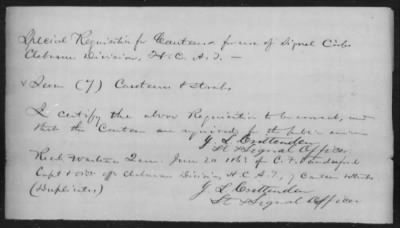 Special Requisition for Canteens for use of Signal Corps
Cleburne Division, H. C. A. T. —
(7) Canteens & straps
I certify the above Requisition to be correct, and
that the Canteens are required for the public service
J L Crittenden
Lt & Signal Officer
Recd June 20 1863 of C. F.
Capt & Cleburne Division H. C. A. T., 7 Canteens
(Duplicates)
J L Crittenden
Lt & Signal Officer